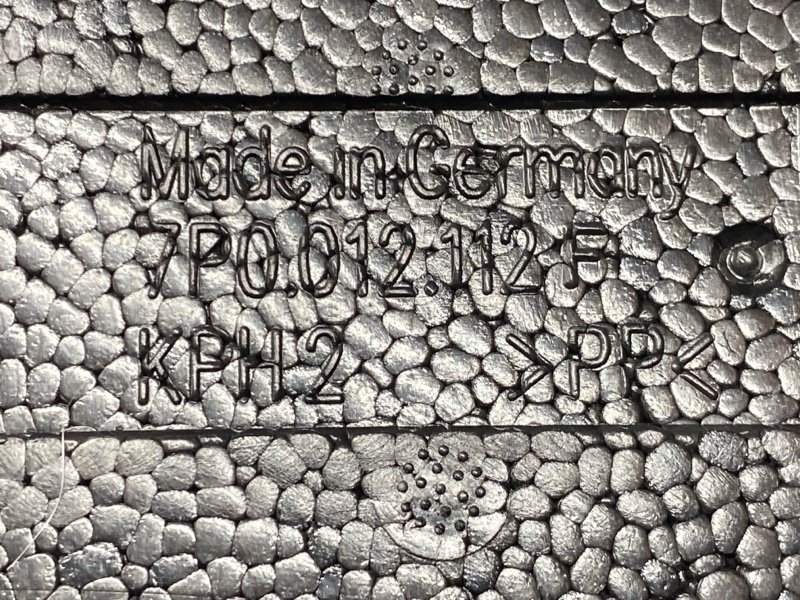 Made in Germany
7P0.012.112 F
KPH.2 >PP<